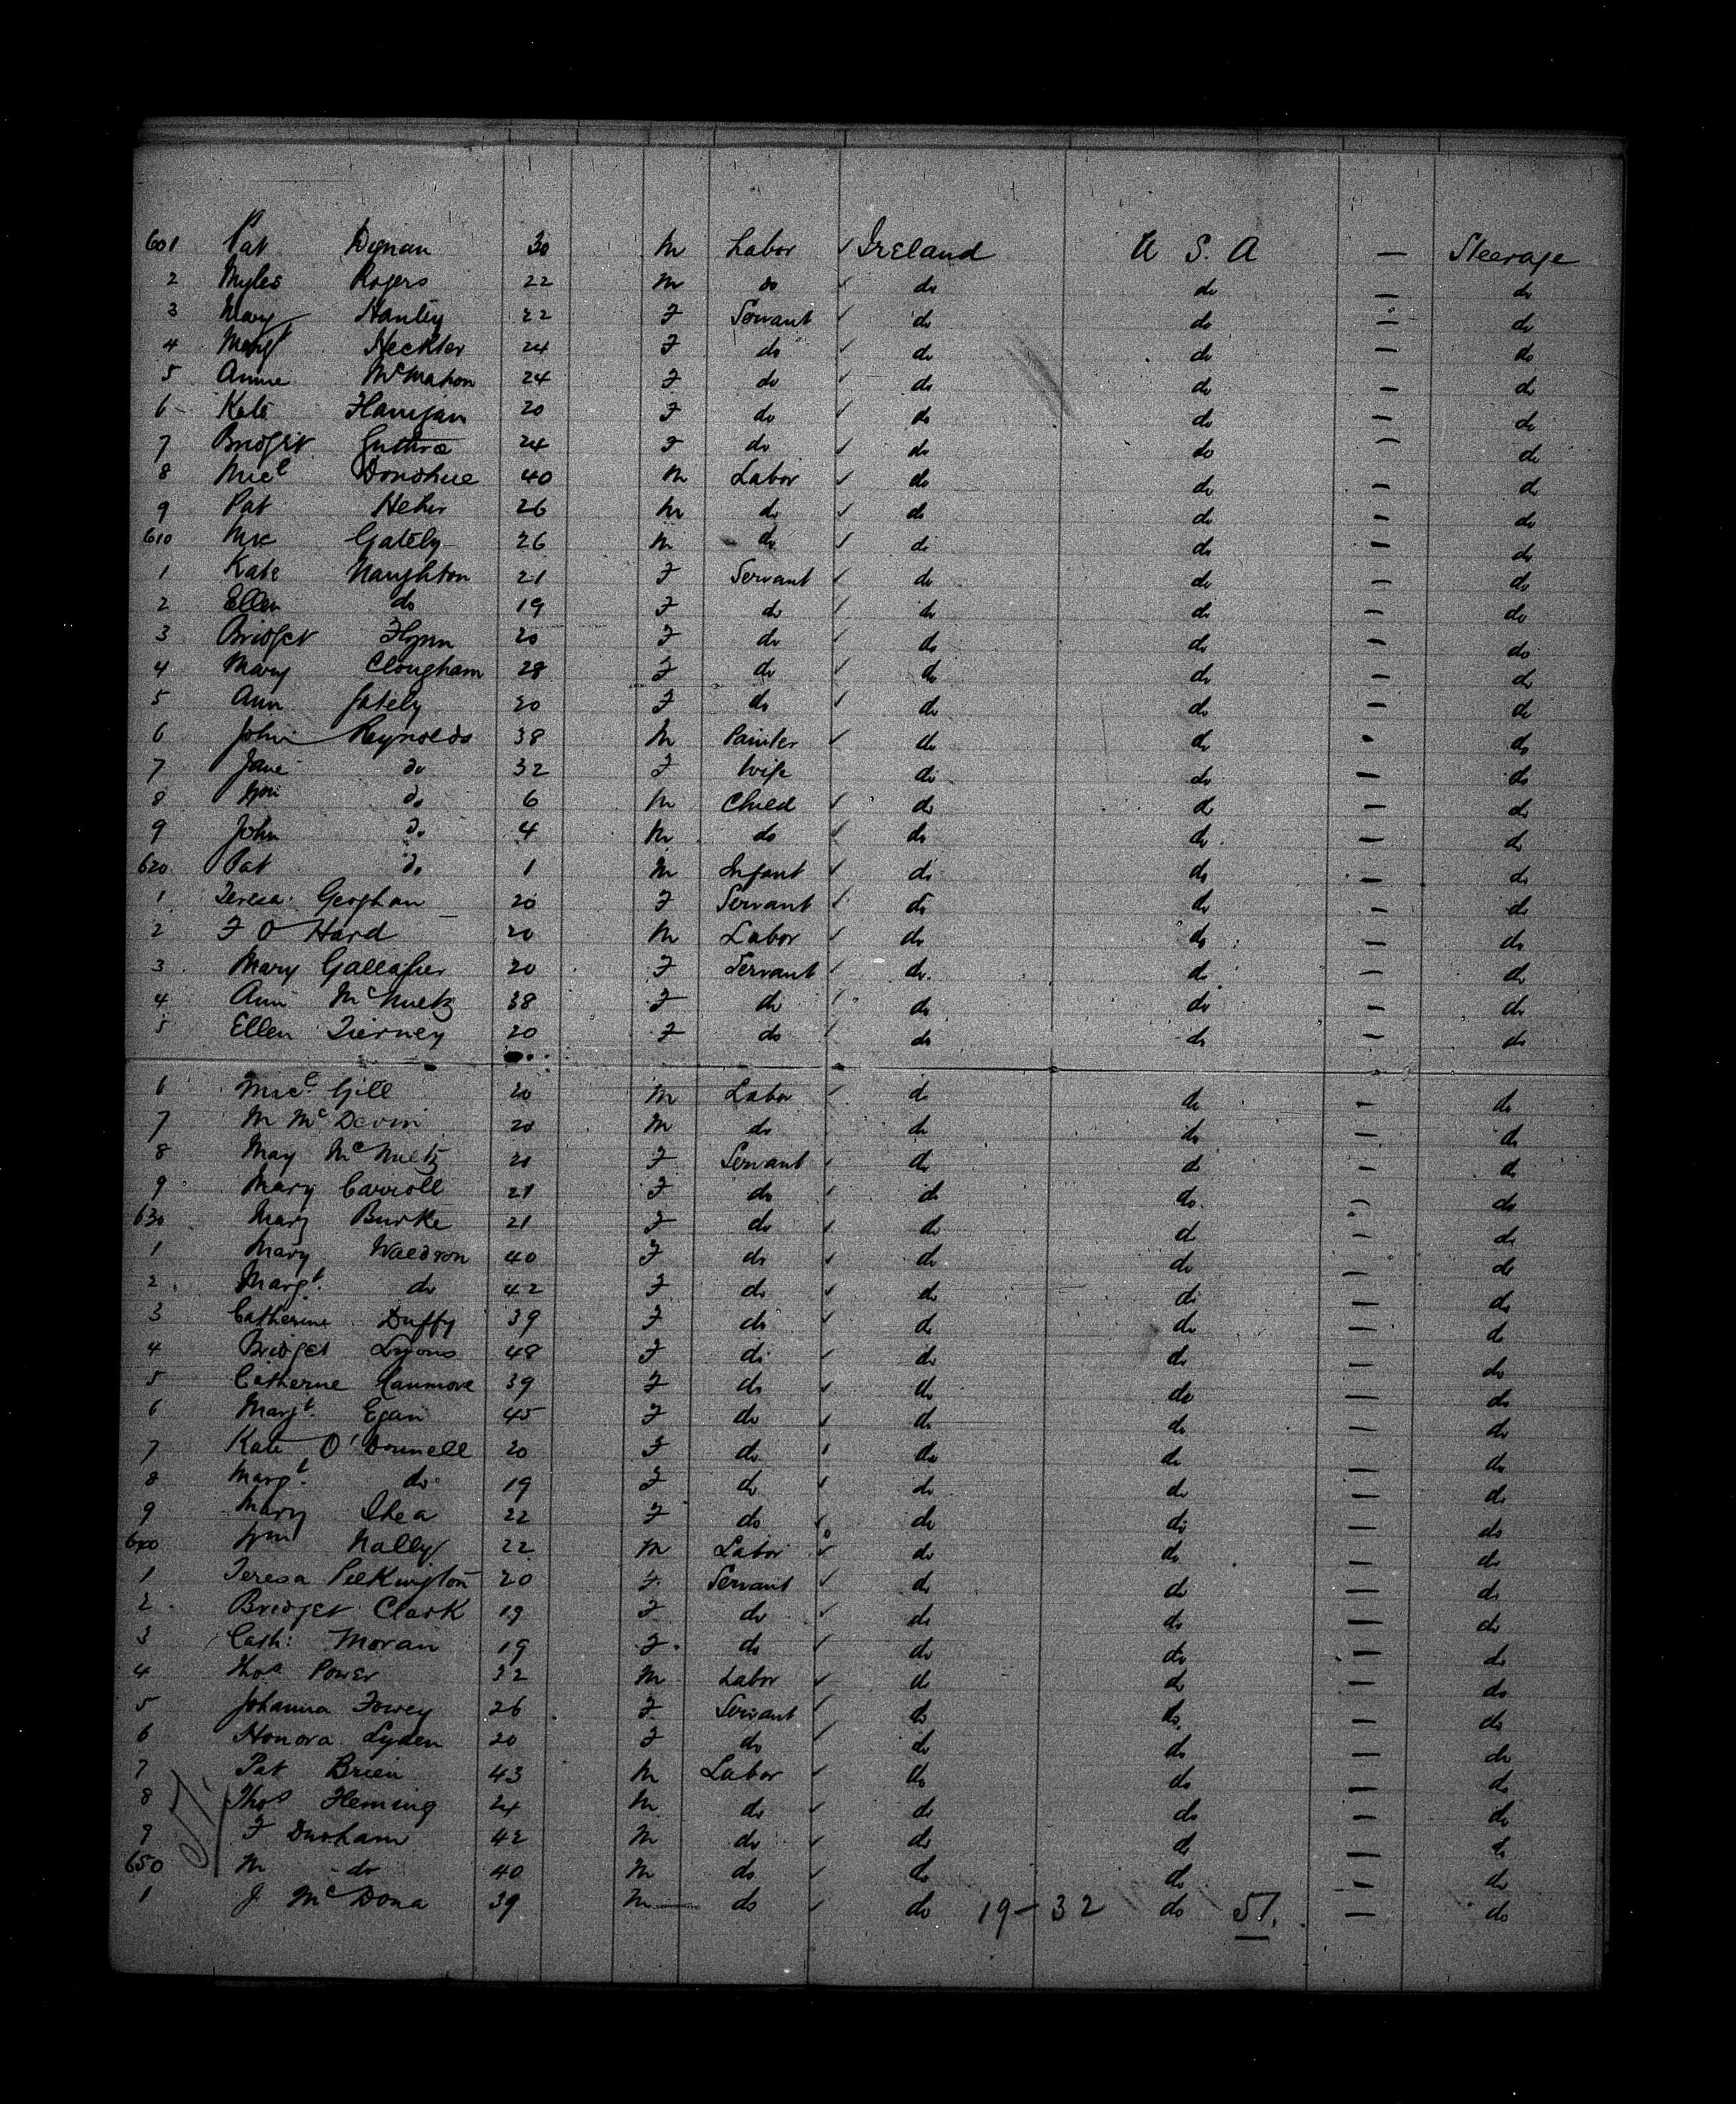 601 Pat Dignan 30 M Labor ✓ Ireland U S. A — Steerage
2 Myles Rogers 22 M do ✓ do do — do
3 Mary Hanley 22 F Servant ✓ do do — do
4 Margt Heckler 24 F do ✓ do do — do
5 Annie McMahon 24 F do ✓ do do — do
6 Kate Flanigan 20 F do ✓ do do — do
7 Bridget Guthrie 24 F do ✓ do do — do
8 Micl Donohue 40 M Labor ✓ do do — do
9 Pat Heher 26 M do ✓ do do — do
610 Mic Gately 26 M do ✓ do do — do
1 Kate Naughton 21 F Servant ✓ do do — do
2 Ellen do 19 F do ✓ do do — do
3 Bridget Flynn 20 F do ✓ do do — do
4 Mary Clougham 28 F do ✓ do do — do
5 Ann Gately 20 F do ✓ do do — do
6 John Reynolds 38 M Painter ✓ do do — do
7 Jane do 32 F Wife do do — do
8 Wm do 6 M Child ✓ do do — do
9 John do 4 M do ✓ do do — do
620 Pat do 1 M Infant ✓ do do — do
1 Teresa Geoghan 20 F Servant ✓ do do — do
2 F O Hard 20 M Labor ✓ do do — do
3 Mary Gallagher 20 F Servant ✓ do do — do
4 Ann 38 F do ✓ do do — do
5 Ellen Tierney 20 F do ✓ do do — do
6 Micl Gill 20 M Labor ✓ do do — do
7 M McDevin 20 M do do do — do
8 May F Servant ✓ do do — do
9 Mary Carroll 21 F do ✓ do do — do
630 Mary Burke 21 F do ✓ do do — do
1 Mary Waldron 40 F do ✓ do do — do
2 Margt do 42 F do ✓ do do — do
3 Catherine Duffy 39 F do ✓ do do — do
4 Bridget Lyons 48 F do ✓ do do — do
5 Catherine 39 F do ✓ do do — do
6 Margt Egan 45 F do ✓ do do — do
7 Kate O'Donnell 20 F do ✓ do do — do
8 Margt do 19 F do ✓ do do — do
9 Mary Shea 22 F do ✓ do do — do
640 Wm Nally 22 M Labor ✓ do do — do
1 Teresa Pilkington 20 F Servant ✓ do do — do
2 Bridget Clark 19 F do ✓ do do — do
3 Cath: Moran 19 F do ✓ do do — do
4 Thos Power 32 M Labor ✓ do do — do
5 Johanna Fowey 26 F Servant ✓ do do — do
6 Honora Lyden 20 F do ✓ do do — do
7 Pat Brien 43 M Labor ✓ do do — do
8 Thos Fleming 24 M do ✓ do do — do
9 F Durham 42 M do ✓ do do — do
650 M do 40 M do ✓ do do — do
1 J McDona 39 M do ✓ do 19-32 do 51. — do
51.